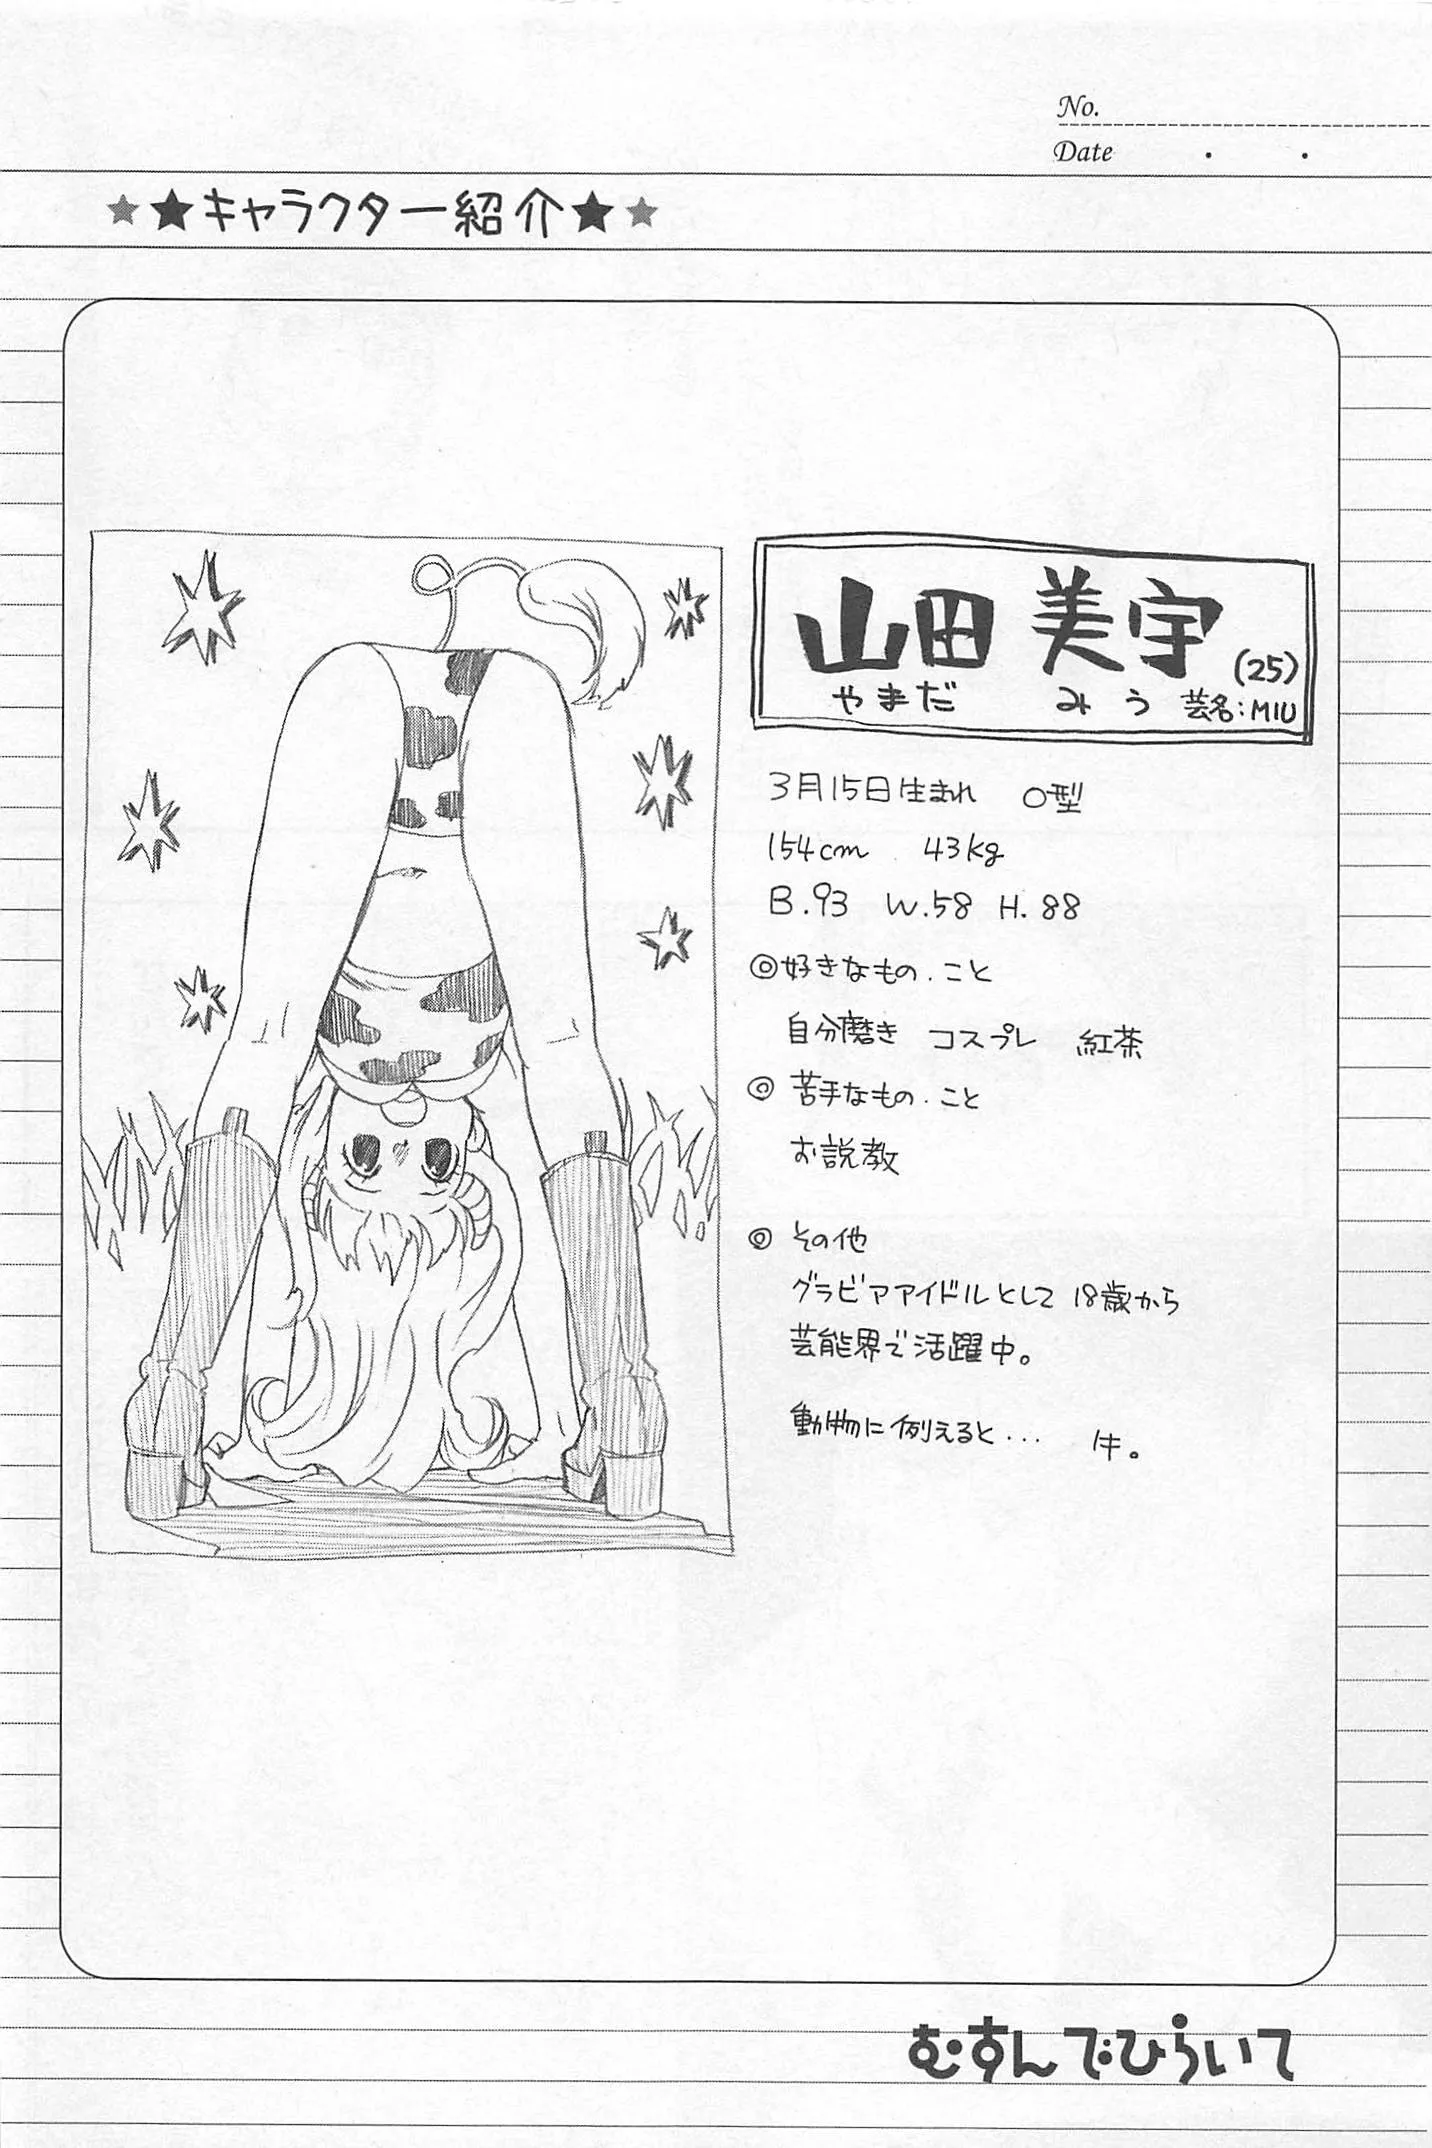 No.
Date ・ ・
★★キャラクター紹介★★
山田 美宇 (25)
やまだ みう 芸名:MIU
3月15日生まれ O型
154cm 43kg
B.93 W.58 H.88
◎好きなもの・こと
自分磨き コスプレ 紅茶
◎苦手なもの・こと
お説教
◎その他
グラビアアイドルとして18歳から
芸能界で活躍中。
動物に例えると… 牛。
むすんでひらいて